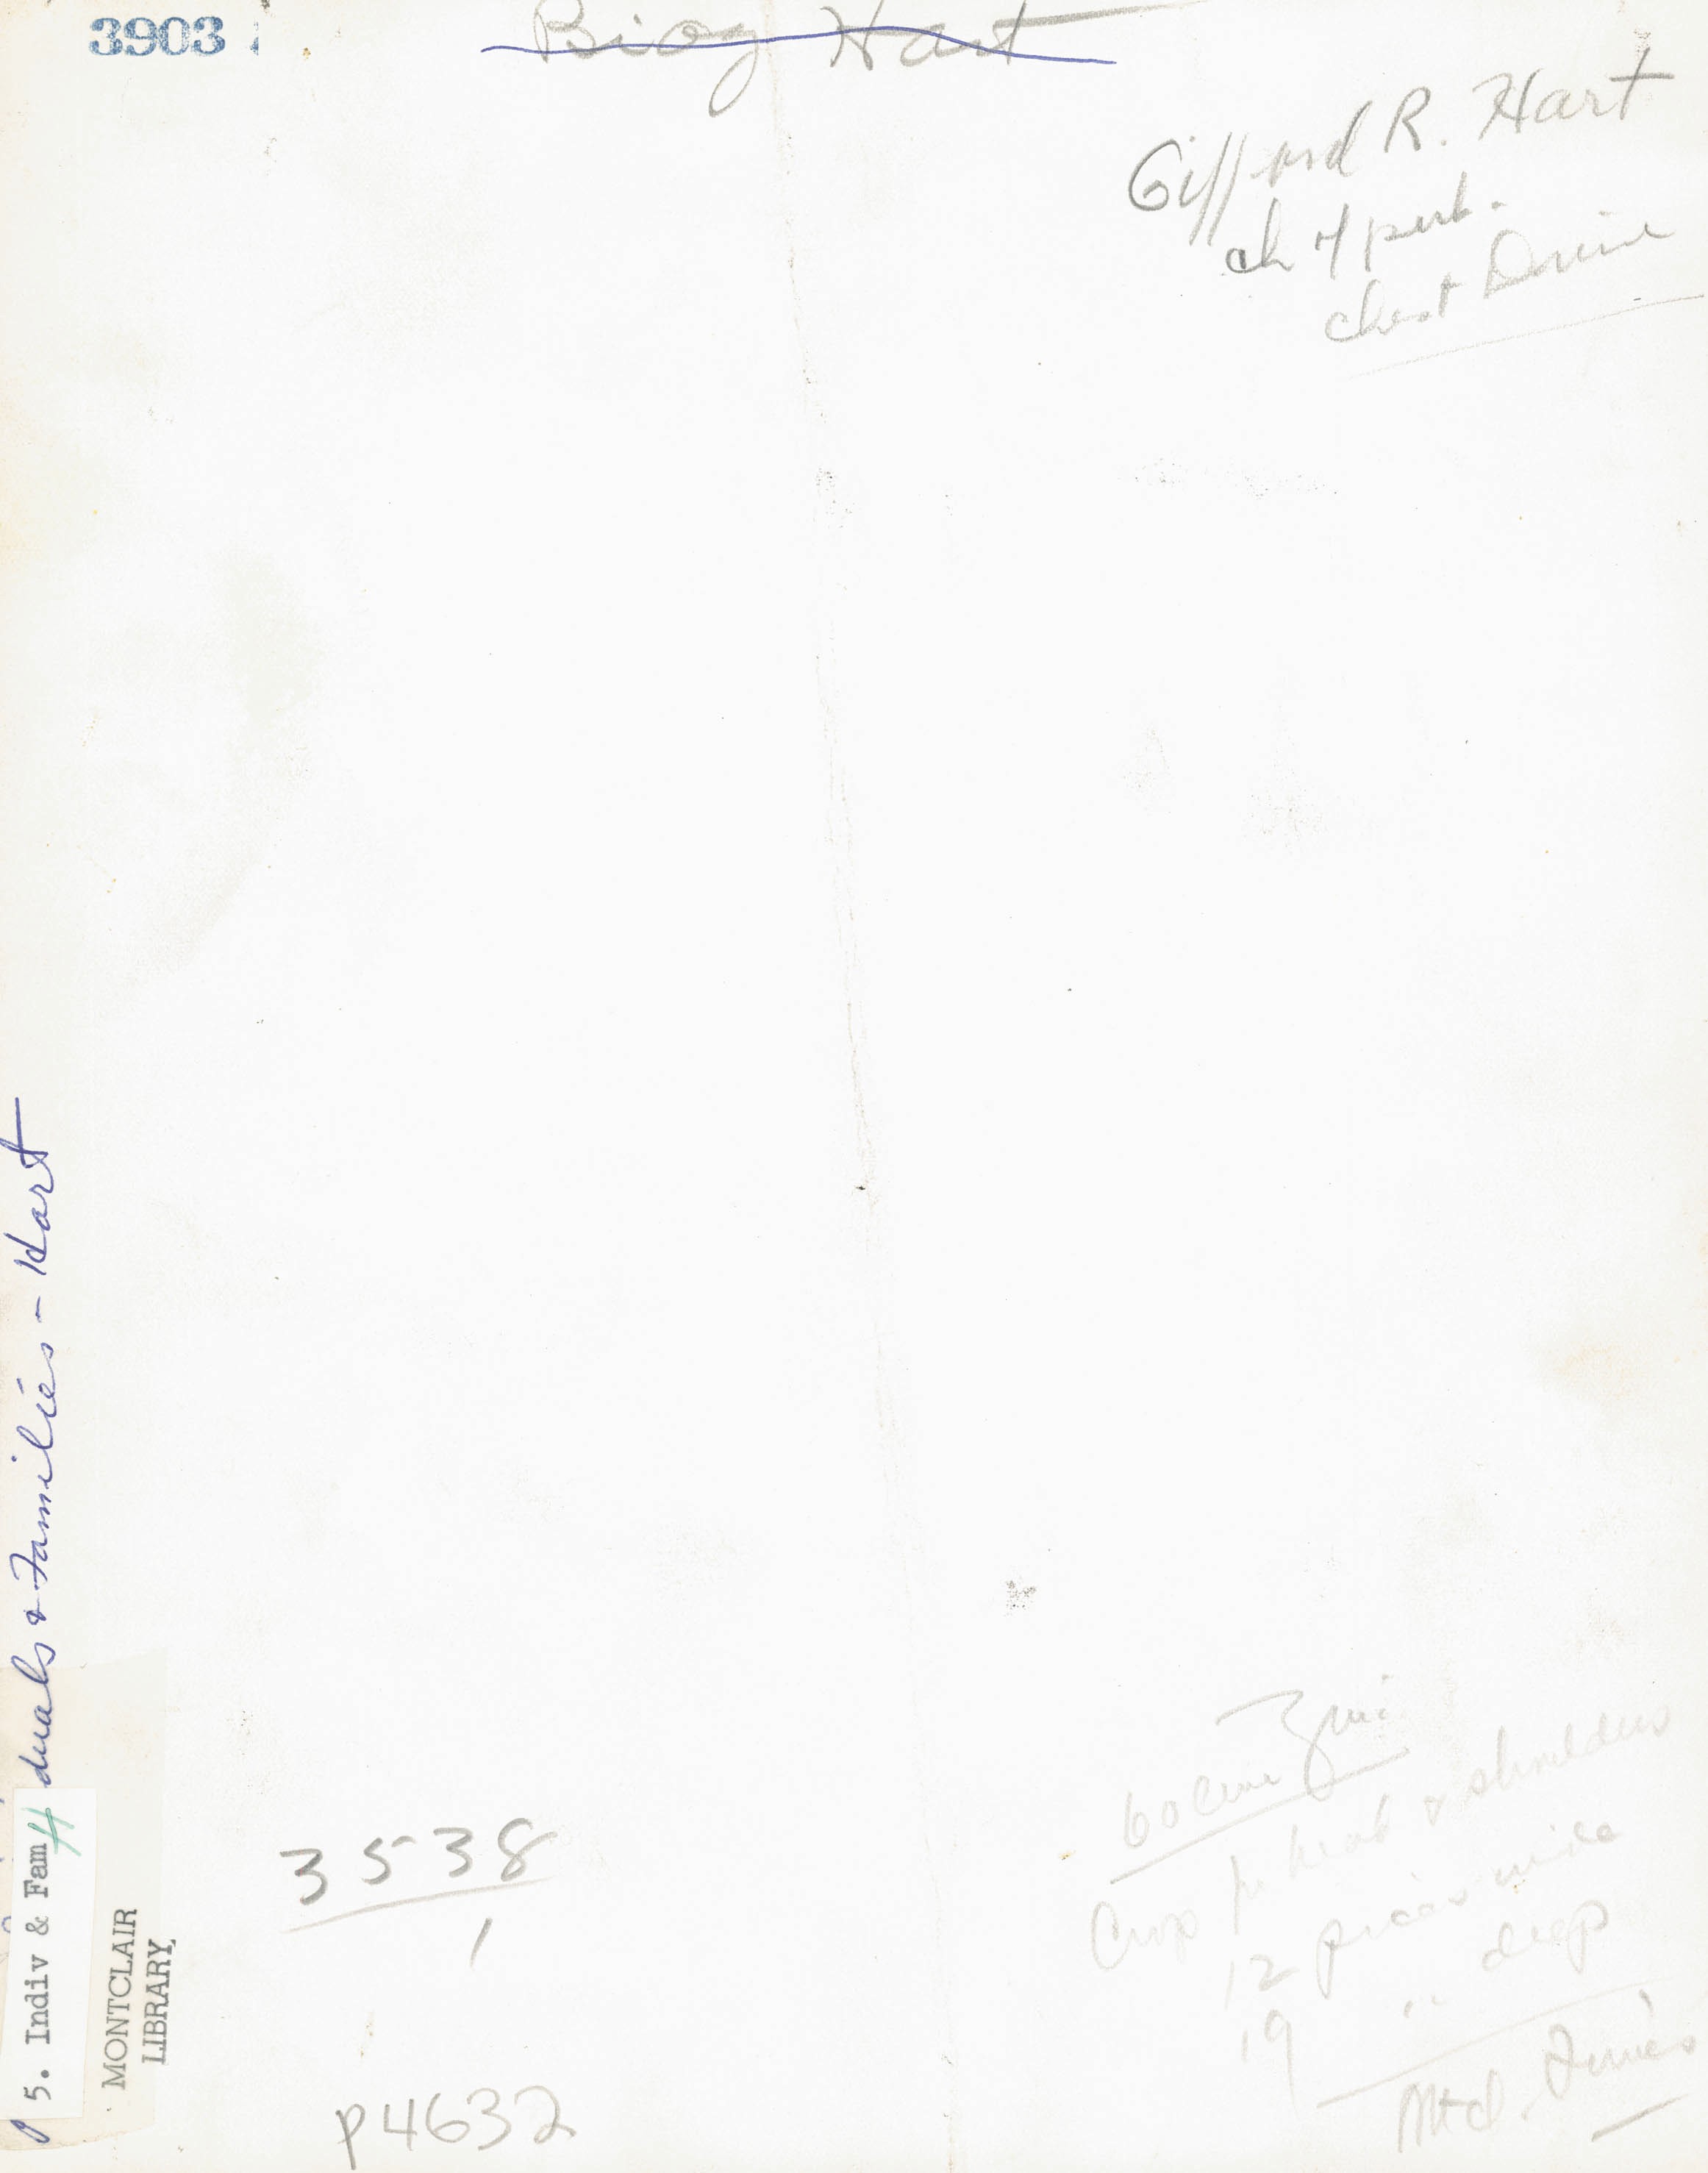 3903
Biog Hart
Gifford R. Hart
ch of pub.
chest Drive
duals & Families - Hart
5. Indiv & Fam H
MONTCLAIR
LIBRARY
3538
1
p4632
60 line
Crop to head & shoulders
12 picas wide
19 " deep
Mtcl. Times